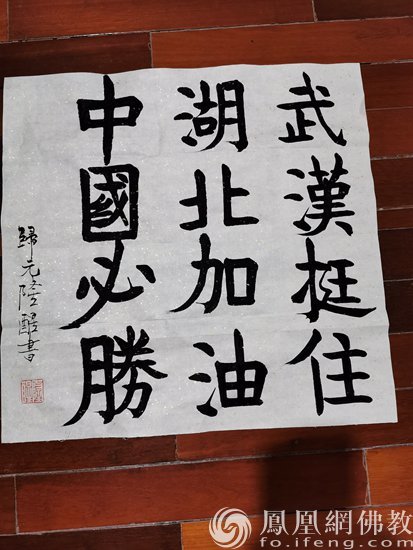 武漢挺住
湖北加油
中國必勝
歸元隆醒書
鳳凰網佛教
fo.ifeng.com